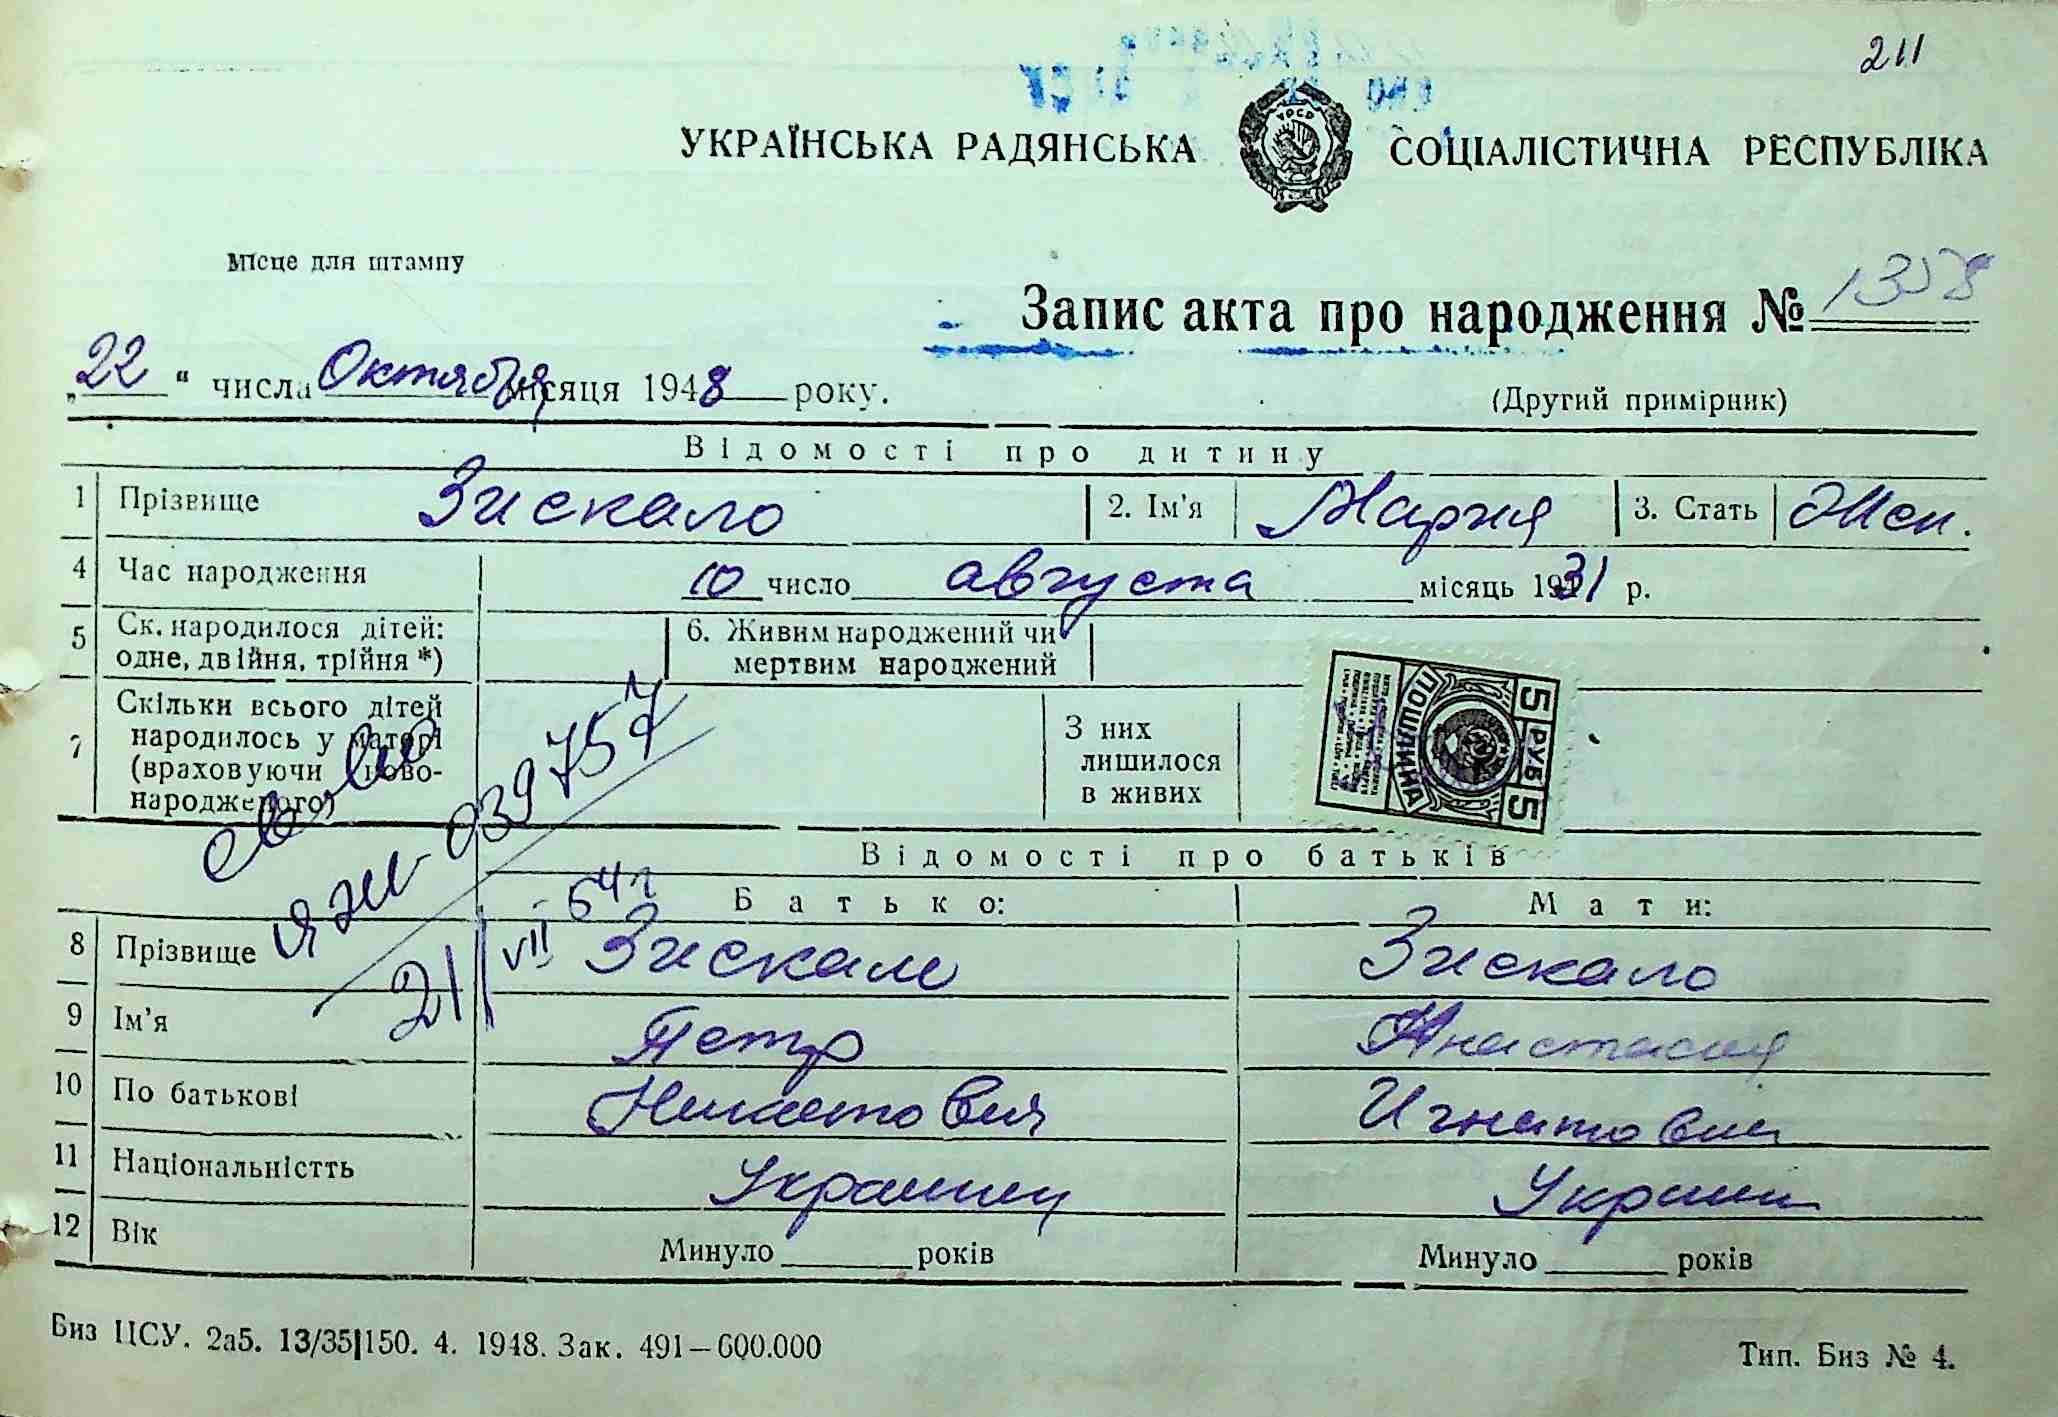 211
УКРАЇНСЬКА РАДЯНСЬКА СОЦІАЛІСТИЧНА РЕСПУБЛІКА
УРСР
Місце для штампу
Запис акта про народження № 1358
„22“ числа Октября місяця 1948 року.
(Другий примірник)
Відомості про дитину
1 Прізвище Зискало 2. Ім'я Мария 3. Стать Жен.
4 Час народження 10 число августа місяць 1931 р.
5 Ск. народилося дітей: одне, двійня, трійня *) 6. Живим народжений чи мертвим народжений
7 Скільки всього дітей народилось у матері (враховуючи ново-народженого) З них лишилося в живих
5 РУБ 5
ПОШЛИНА
ЯЖ 039757
21 VII 54 г
Відомості про батьків
Батько: Мати:
8 Прізвище Зискало Зискало
9 Ім'я Петр Анастасия
10 По батькові Игнатовна
11 Національністть Украинец
12 Вік Минуло років Минуло років
Биз ЦСУ. 2а5. 13/35|150. 4. 1948. Зак. 491–600.000
Тип. Биз № 4.